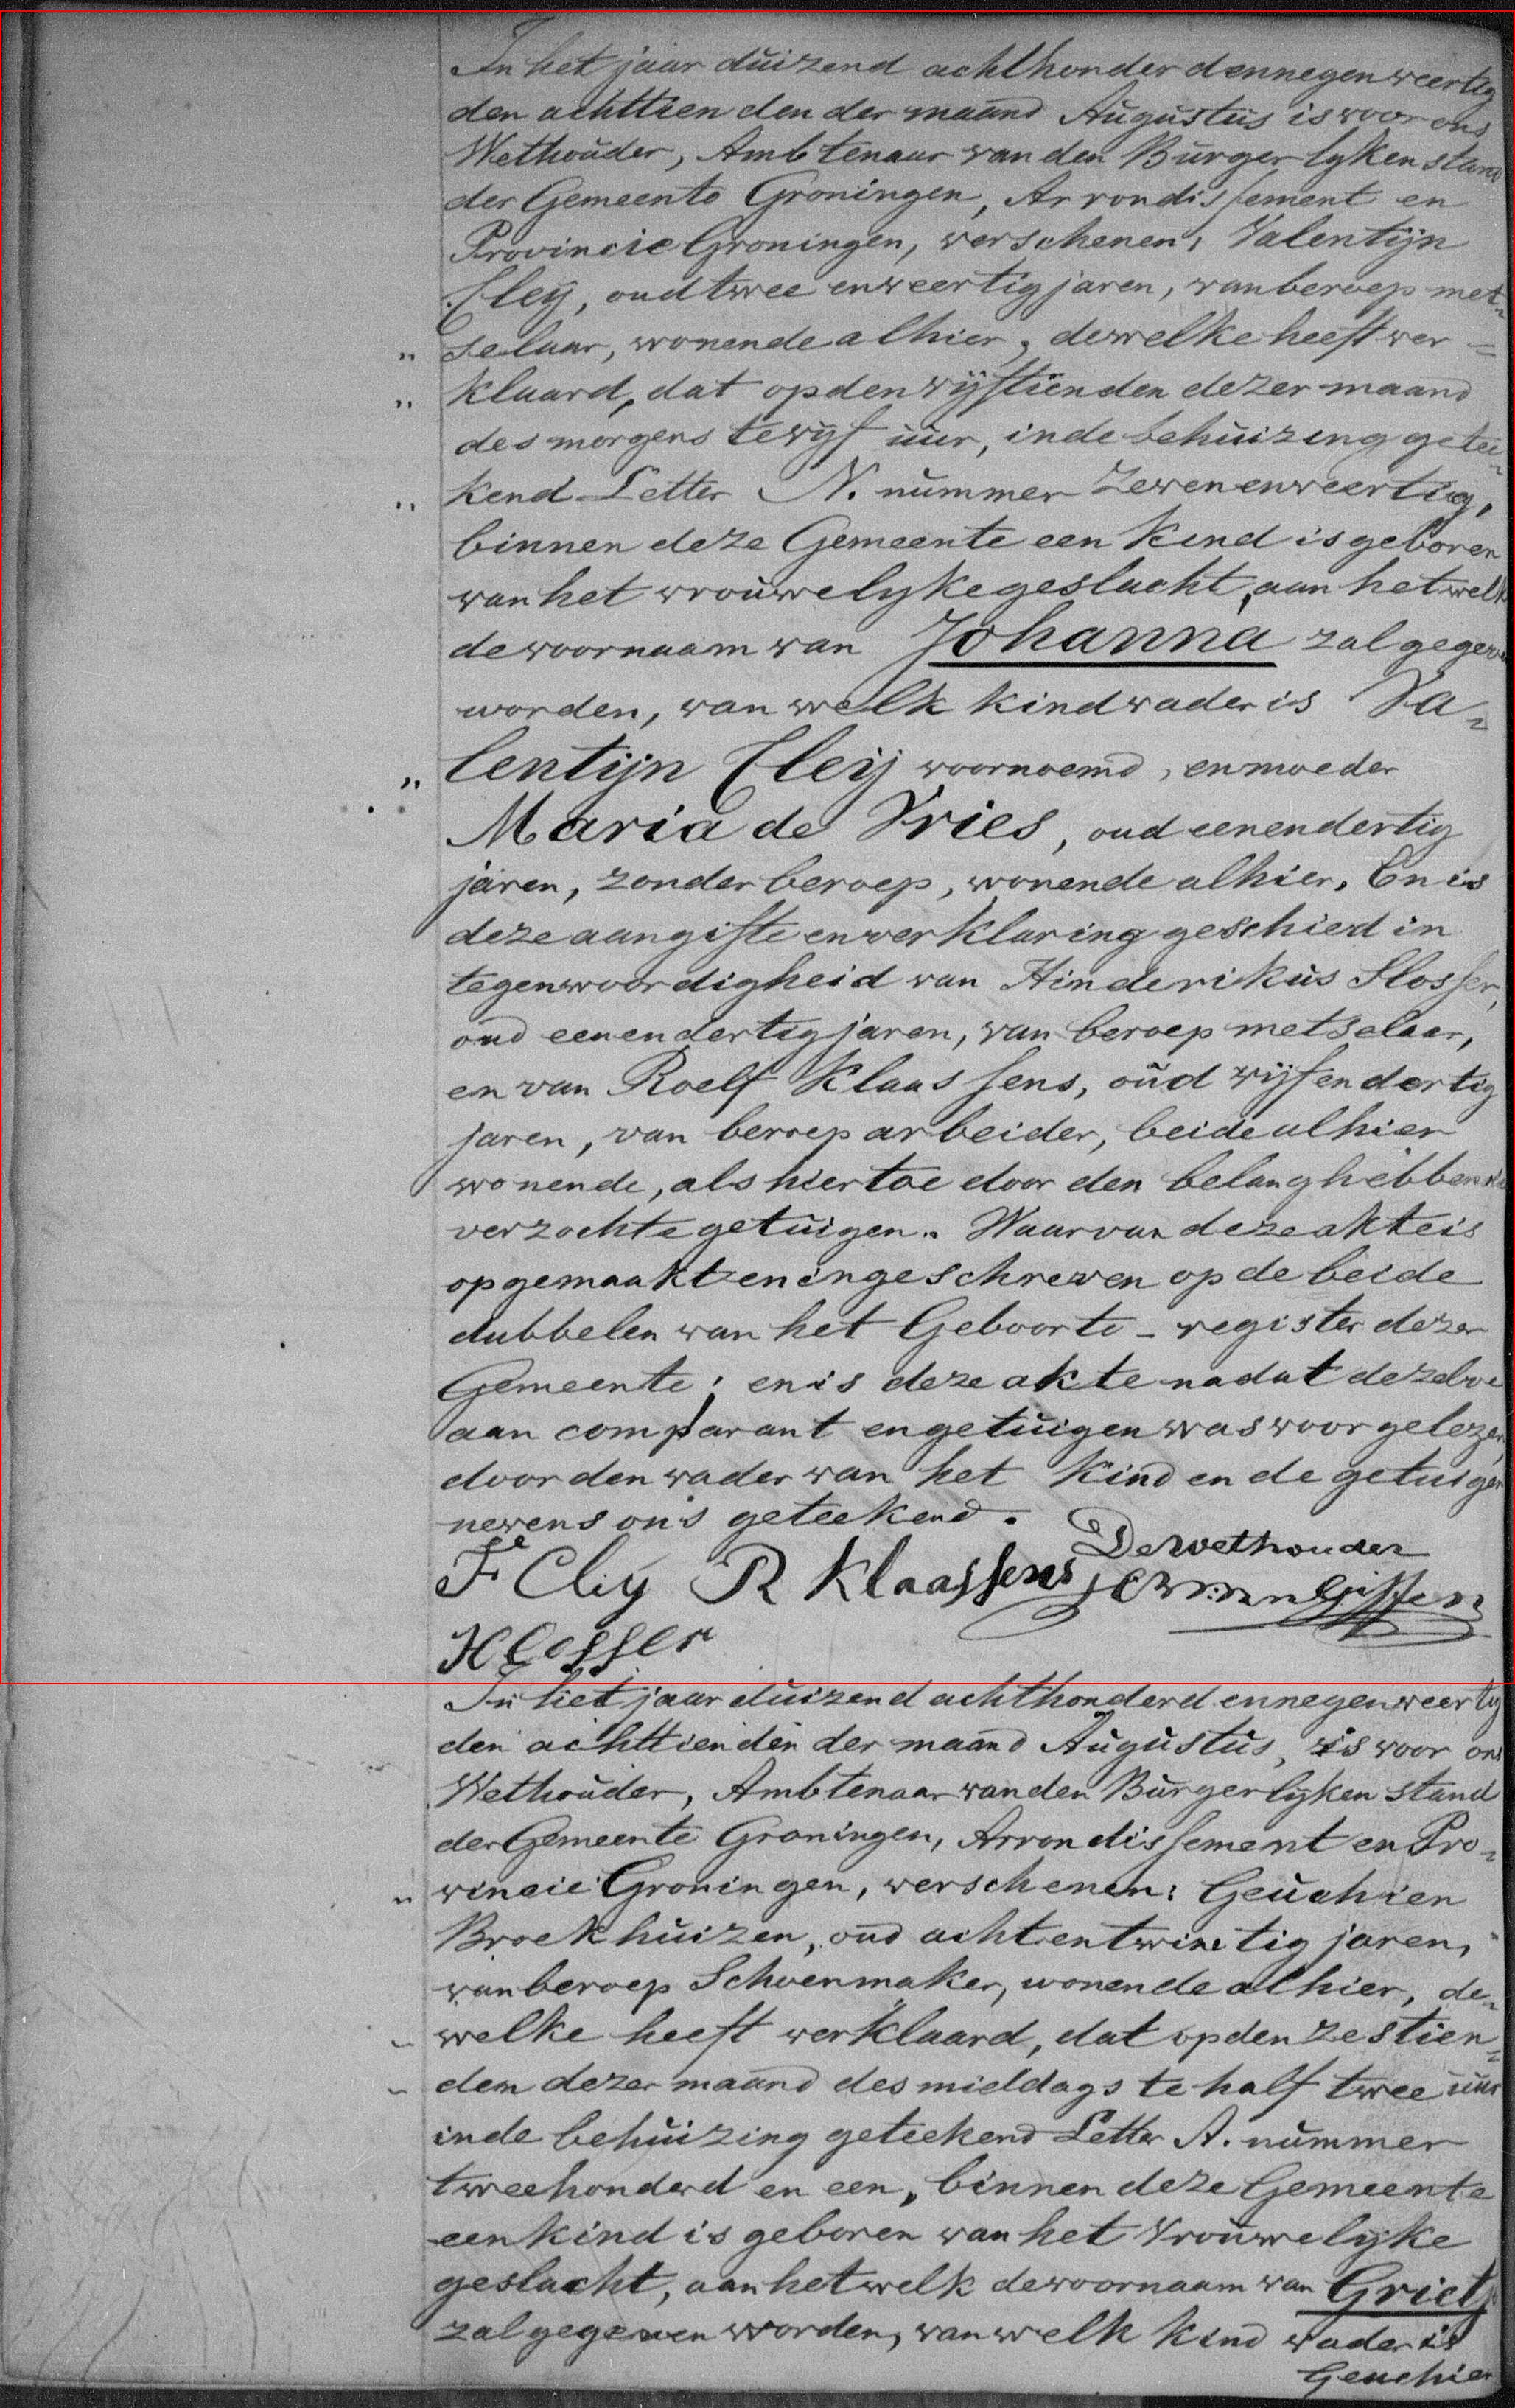 In het jaar duizend achthonderd en negenveertig
den achttienden der maand Augustus is voor ons
Wethouder, Ambtenaar van den Burgerlyken stand
der Gemeente Groningen, Arrondissement en
Provincie Groningen, verschenen; Valentijn
Cleij, oud twee en veertig jaren, van beroep met=
" selaar, wonende alhier, dewelke heeft ver=
" klaard, dat op den vijftienden dezer maand
des morgens te vyf uur, in de behuizing getee=
" kend Letter N. nummer zevenenveertig,
binnen deze Gemeente een kind is geboren
van het vrouwelyke geslacht, aan hetwelk
de voornaam van Johanna zal gegeven
worden, van welk kind vader is Va=
" lentijn Cleij voornoemd, en moeder
Maria de Vries, oud eenendertig
jaren, zonder beroep, wonende alhier. En is
deze aangifte en verklaring geschied in
tegenwoordigheid van Hinderikus Slosser,
oud eenendertig jaren, van beroep metselaar,
en van Roelf Klaassens, oud vijfendertig
jaren, van beroep arbeider, beide alhier
wonende, als hiertoe door den belanghebbende
verzochte getuigen. Waarvan deze akte is
opgemaakt en ingeschreven op de beide
dubbelen van het Geboorte-register dezer
Gemeente; en is deze akte nadat dezelve
aan comparant en getuigen was voorgelezen,
door den vader van het kind en de getuigen
nevens ons geteekend. De Wethouder
F Cleij R Klaassens
H Slosser
In het jaar duizend achthonderd en negenveertig
den achttienden der maand Augustus, is voor ons
Wethouder, Ambtenaar van den Burgerlyken stand
der Gemeente Groningen, Arrondissement en Pro=
" vincie Groningen, verschenen: Geuchien
Broekhuizen, oud achtentwintig jaren,
van beroep Schoenmaker, wonende alhier, de=
" welke heeft verklaard, dat op den zestien=
" den dezer maand des middags te half twee uur
in de behuizing geteekend Letter A. nummer
tweehonderd en een, binnen deze Gemeente
een kind is geboren van het Vrouwelyke
geslacht, aan hetwelk de voornaam van Grietje
zal gegeven worden, van welk kind vader is
Geuchien